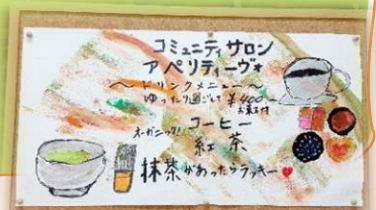 コミュニティサロン
アペリティーヴォ
～ドリンクメニュー～
ゆったり過ごして ¥400
お菓子付
オーガニック!! コーヒー
紅茶
抹茶があったらラッキー♥